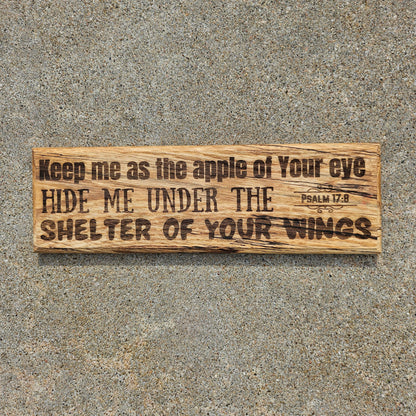 Keep me as the apple of Your eye
HIDE ME UNDER THE
PSALM 17:8
SHELTER OF YOUR WINGS